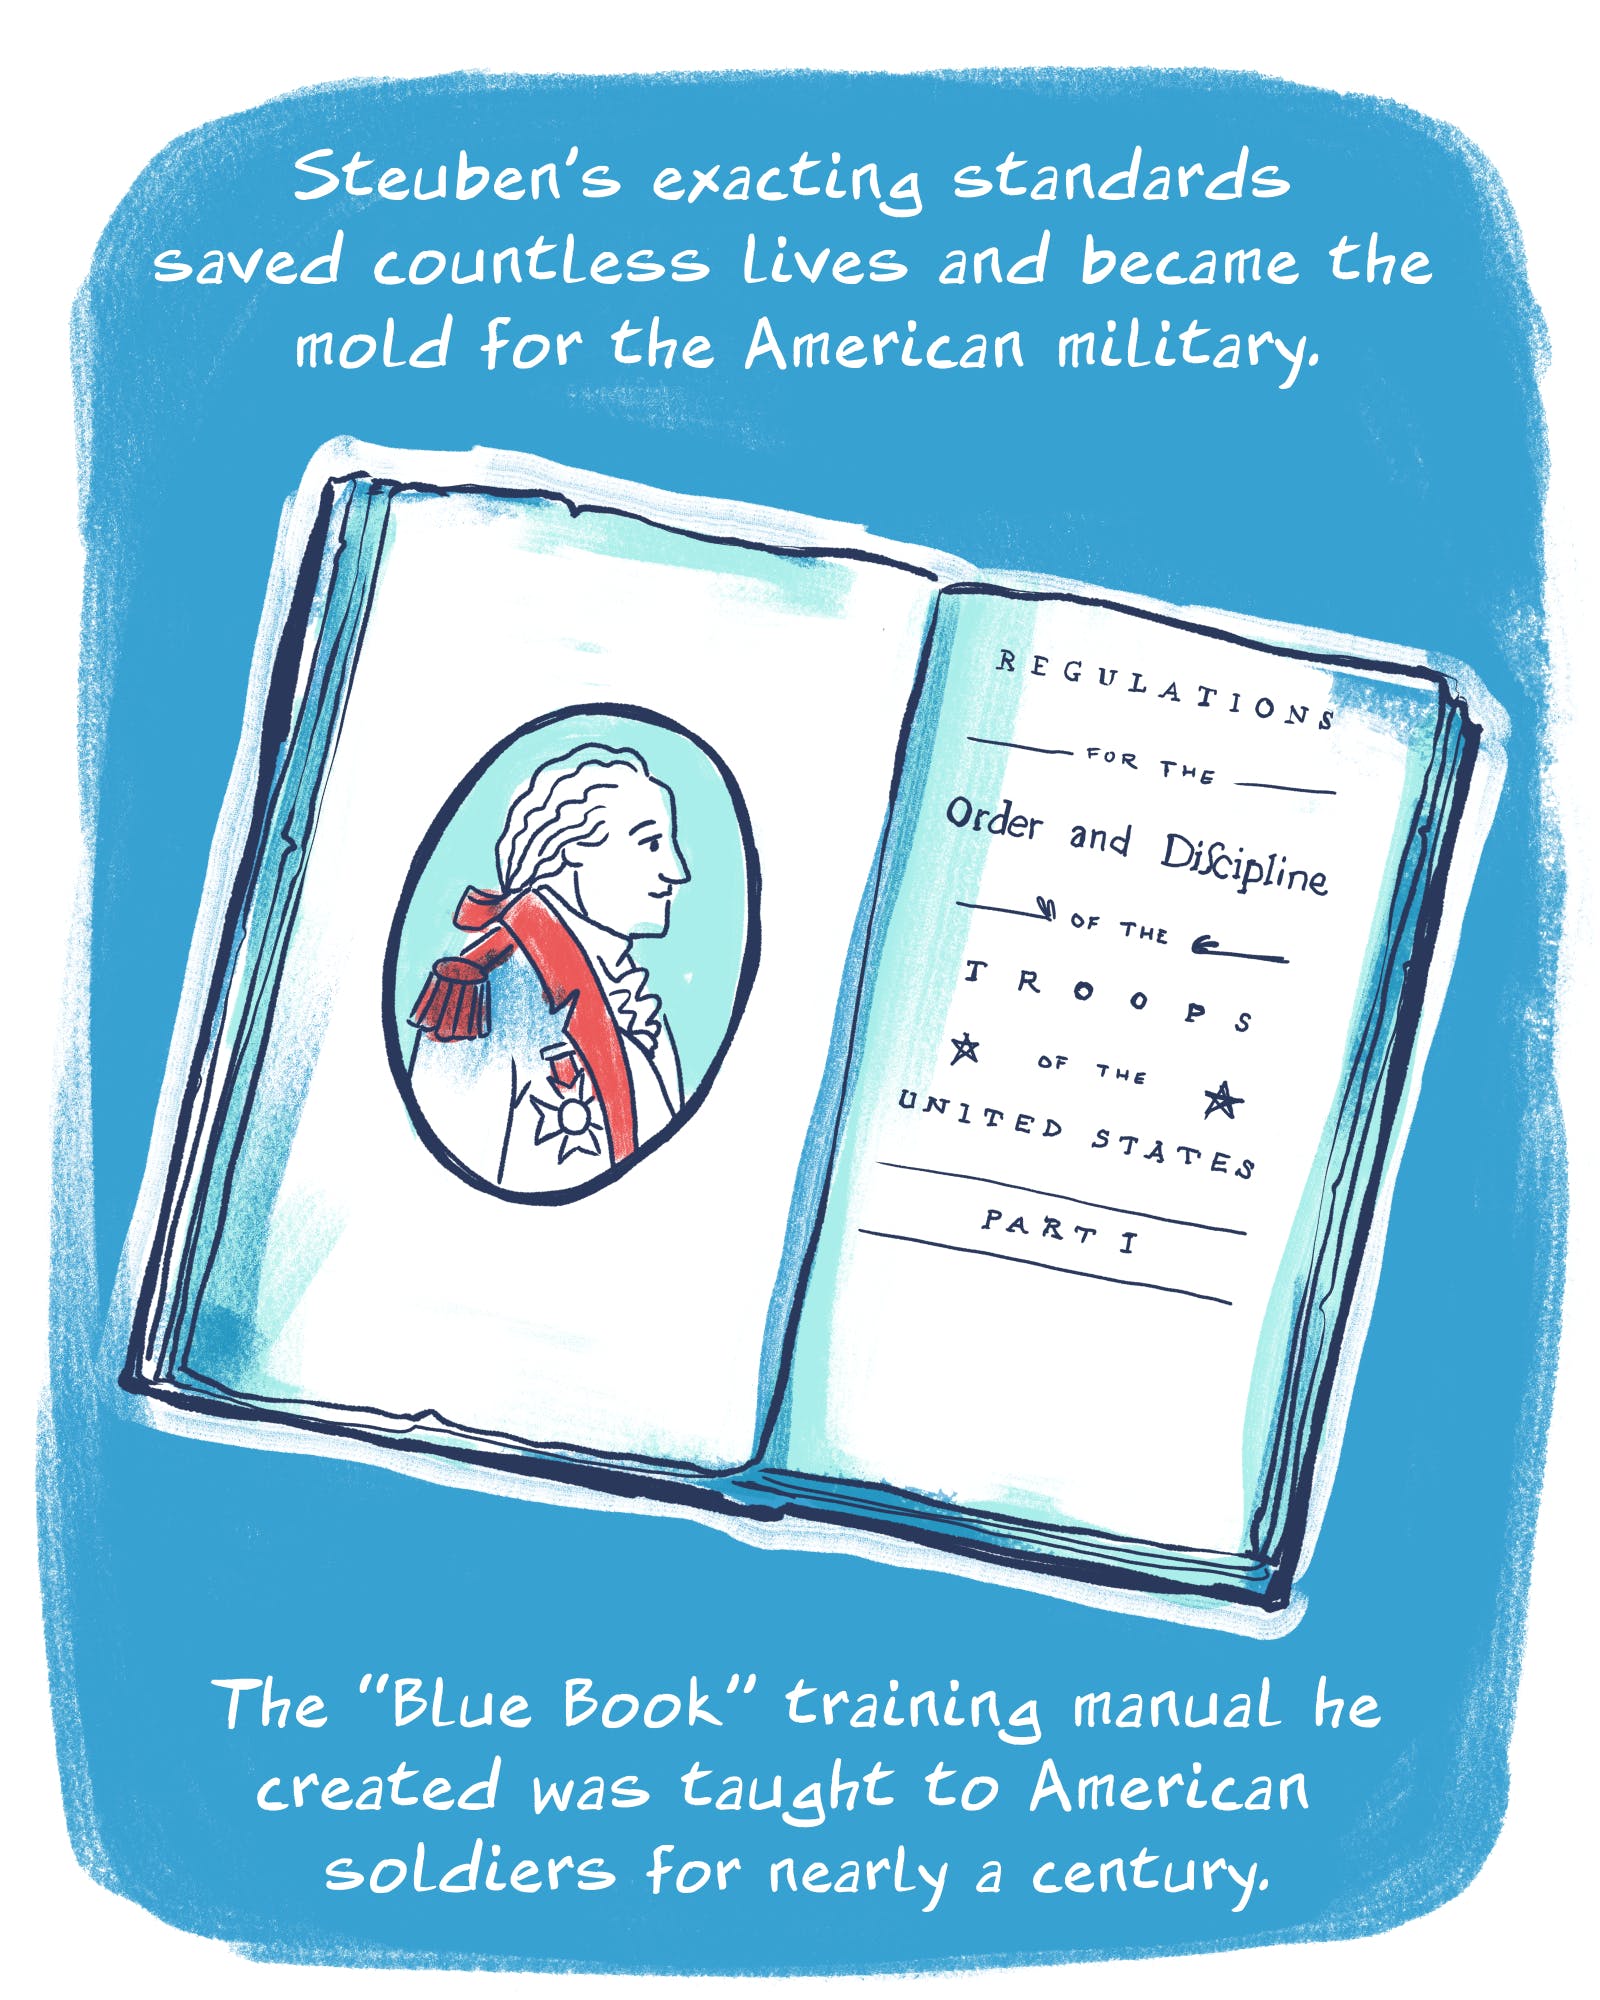 Steuben's exacting standards
saved countless lives and became the
mold for the American military.
REGULATIONS
FOR THE
Order and Diſcipline
OF THE
TROOPS
OF THE
UNITED STATES
PART I
The “Blue Book” training manual he
created was taught to American
soldiers for nearly a century.